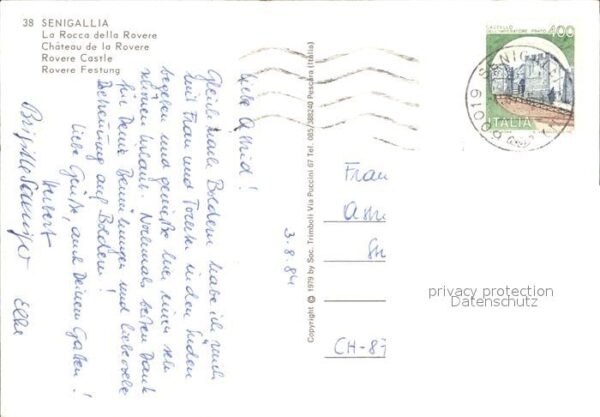 38 SENIGALLIA
La Rocca della Rovere
Château de la Rovere
Rovere Castle
Rovere Festung
CASTELLO
DELL'IMPERATORE PRATO
400
ITALIA
SENIGALLIA
60019
3.8.84
Liebe
Gleich nach Boldern habe ich mich
mit Frau und Tochter in den Süden
begeben und genieße hier einen sehr
schönen Urlaub. Nochmals besten Dank
für Deine Bemühungen und liebevolle
Betreuung auf Boldern!
Liebe Grüße, auch Deinem Gatten!
Herbert
Brigitte
Elke
Copyright © 1979 by Soc. Trimboli Via Puccini 67 Tel. 085/388240 Pescara (Italia)
Frau
CH-8
privacy protection
Datenschutz